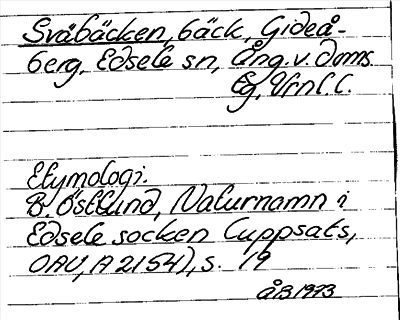 Svåbäcken, bäck, Gideå-
berg, Edsele sn, Ång. v. doms.
Ög, Vrnl. l.
Etymologi.
B. Östlund, Naturnamn i
Edsele socken (uppsats,
OAU, A 2154), s. 19
ÅB 1973